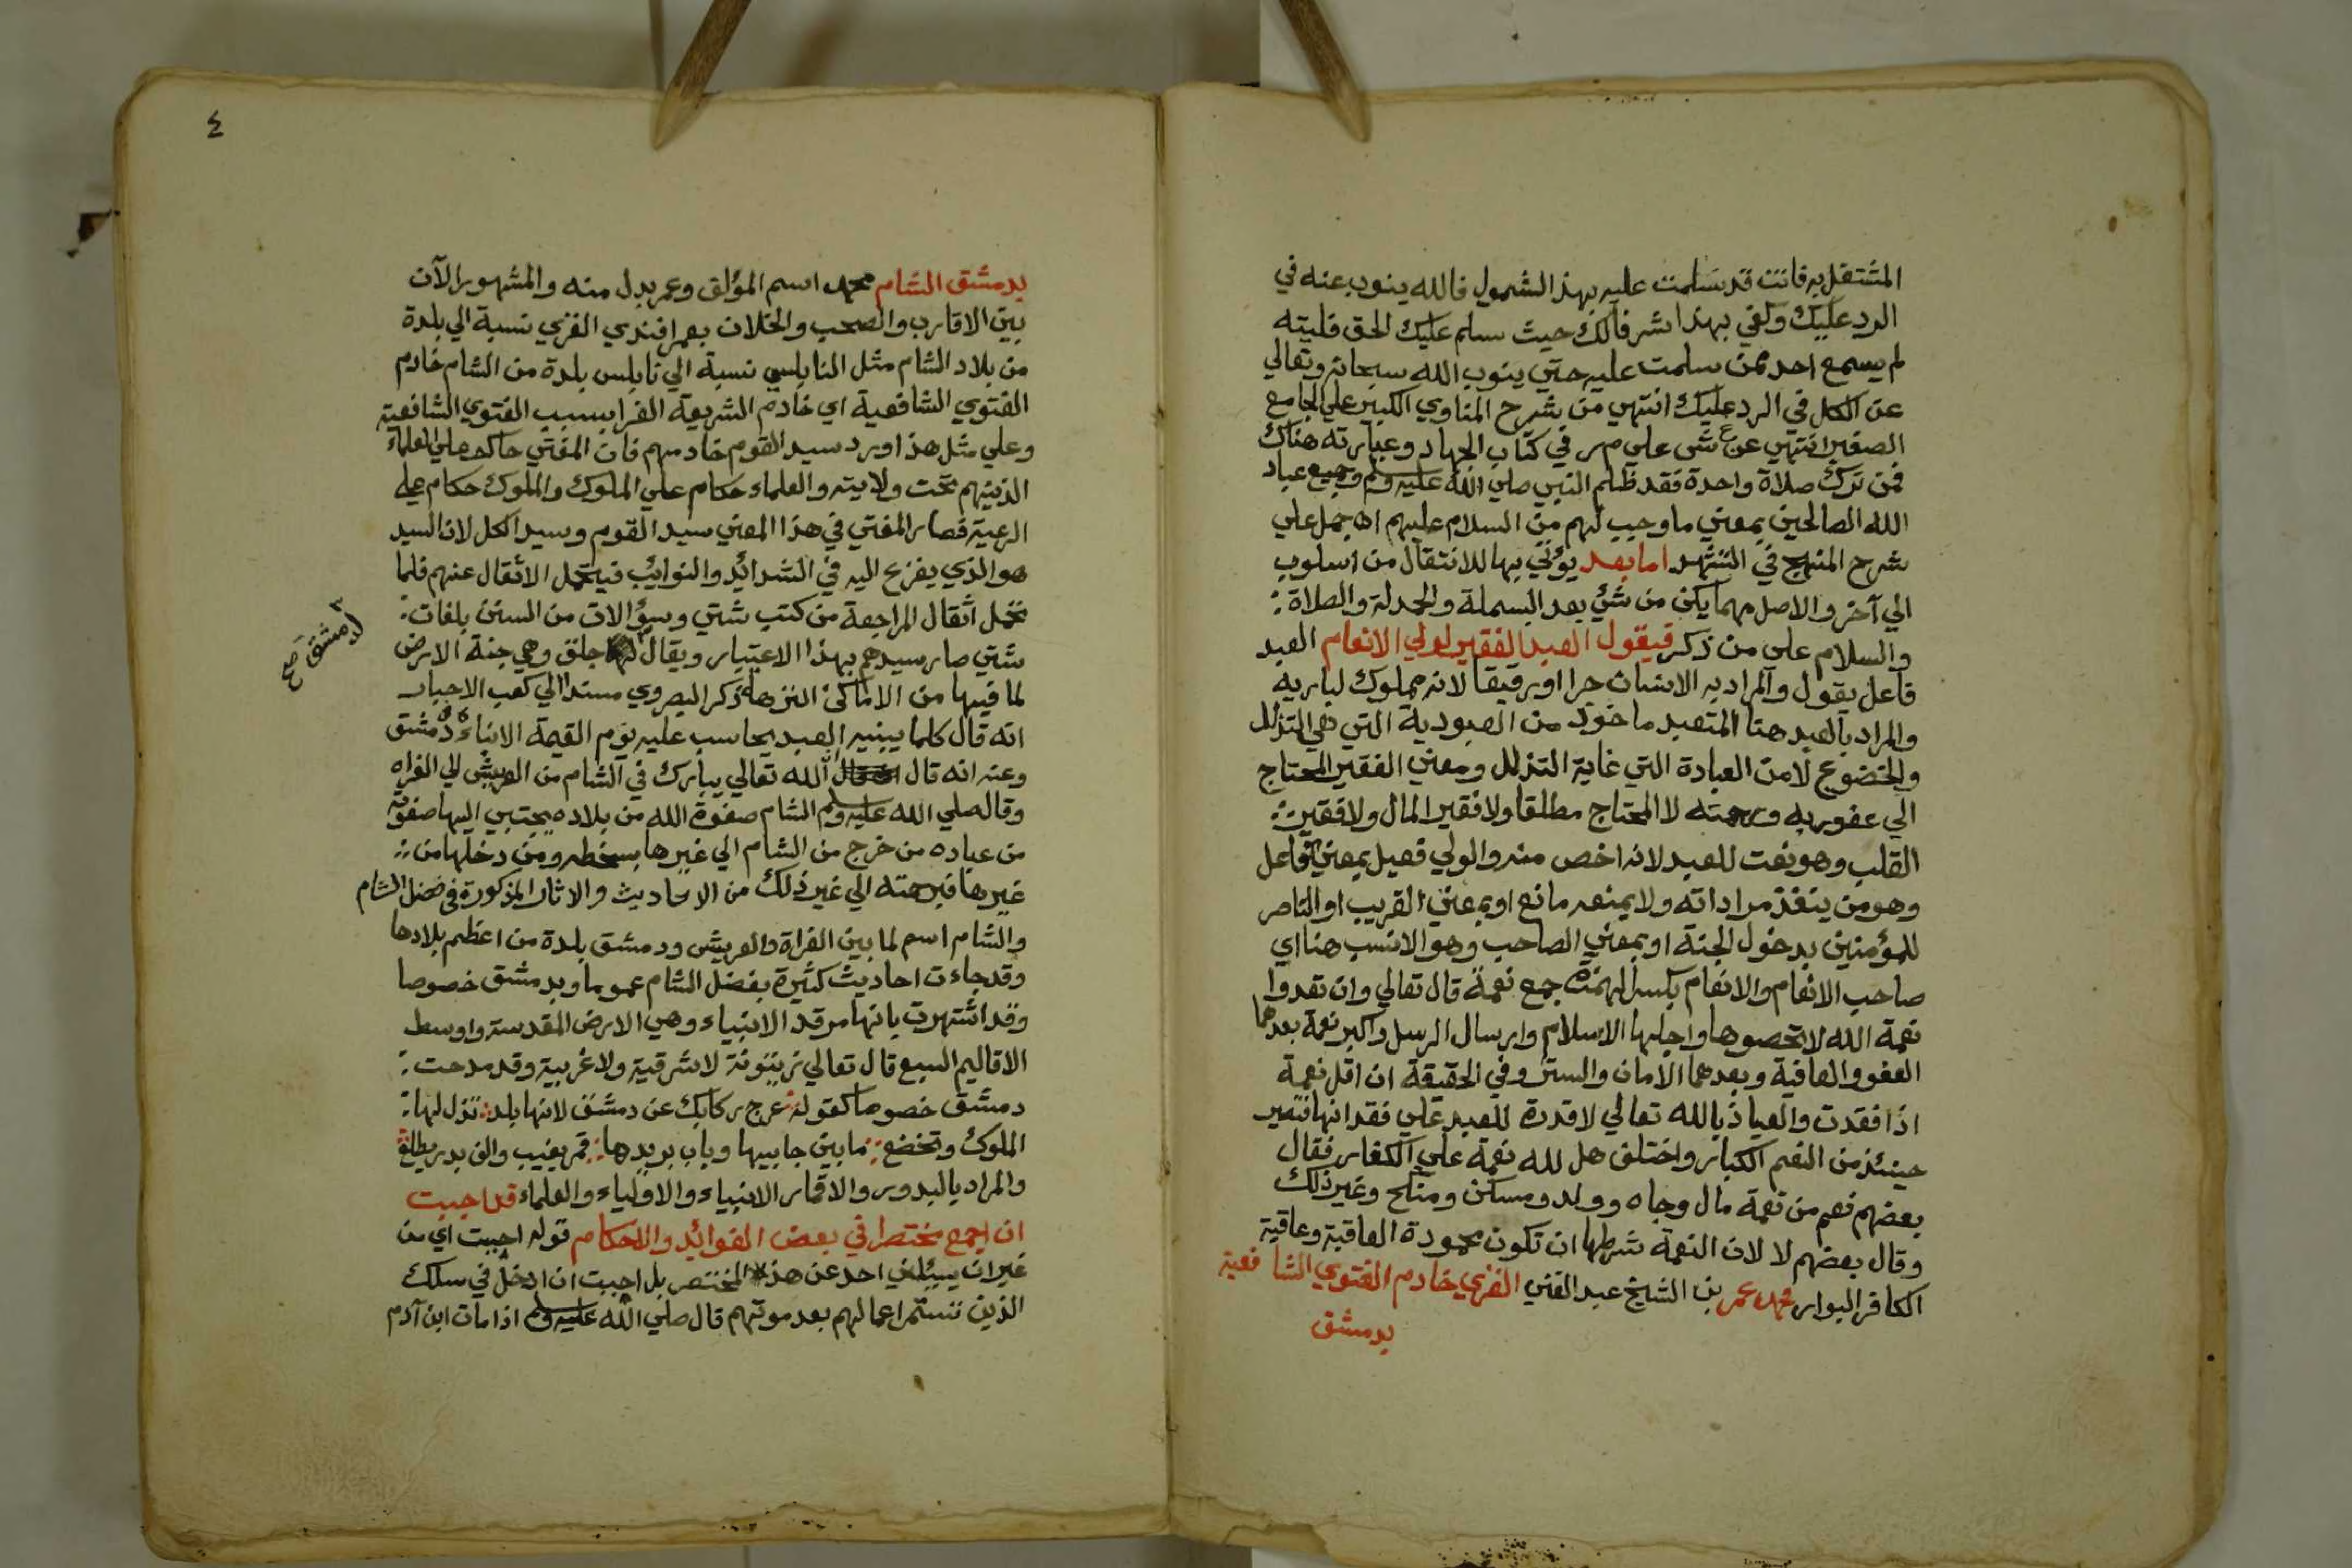 المشتغل به فانت قد سلمت عليه بهذا الشمول فالله ينوب عنه في
الرد عليك وكفي بهذا شرفا لك حيث سلم عليك الحق فليته
لم يسمع احد ممن سلمت عليه حتي ينوب الله سبحانه وتعالي
عن الكل في الرد عليك انتهي من شرح المناوي الكبير علي الجامع
الصغير انتهي ع ش علي م ر في كتاب الجهاد وعبارته هناك
فمن ترك صلاة واحدة فقد ظلم النبي صلي الله عليه وسلم وجميع عباد
الله الصالحين بمعني ما وجب لهم من السلام عليهم اه جمل علي
شرح المنهج في التشهد اما بعد يؤتي بها للانتقال من اسلوب
الي آخر والاصل مهما يكن من شئ بعد البسملة والحمدلة والصلاة
والسلام علي من ذكر فيقول العبد الفقير لولي الانعام العبد
فاعل يقول والمراد به الانسان حرا او رقيقا لانه مملوك لباريه
والمراد بالعبد هنا المتعبد ماخوذ من العبودية التي هي التذلل
والخضوع لا من العبادة التي غاية التذلل ومعني الفقير المحتاج
الي عفو ربه ورحمته لا المحتاج مطلقا ولا فقير المال ولا فقير
القلب وهو نعت للعبد لانه اخص منه والولي فعيل بمعني فاعل
وهو من ينفذ مراداته ولا يمنعه مانع او بمعني القريب او الناصر
للمؤمنين بدخول الجنة او بمعني الصاحب وهو الانسب هنا اي
صاحب الانعام والانعام بكسر الهمزة جمع نعمة قال تعالي وان تعدوا
نعمة الله لا تحصوها واجلها الاسلام وارسال الرسل واكبر نعمة بعدهما
العفو والعافية وبعدهما الامان والستر وفي الحقيقة ان اقل نعمة
اذا فقدت والعياذ بالله تعالي لا قدرة للعبد علي فقدانها فتصير
حينئذ من النعم الكبار واختلف هل لله نعمة علي الكفار فقال
بعضهم نعم من نعمة مال وجاه وولد ومسكن ومنكح وغير ذلك
وقال بعضهم لا لان النعمة شرطها ان تكون محمودة العاقبة وعاقبة
الكافر البوار محمد عمر بن الشيخ عبد الغني الغزي خادم الفتوي الشافعية
بدمشق
٤
بدمشق الشام محمد اسم المؤلف وعمر بدل منه والمشهور الآن
بين الاقارب والصحب والخلان بعمر افندي الغزي نسبة الي بلدة
من بلاد الشام مثل النابلسي نسبة الي نابلس بلدة من الشام خادم
الفتوي الشافعية اي خادم الشريعة الغرا بسبب الفتوي الشافعية
وعلي مثل هذا ورد سيد القوم خادمهم فان المفتي حاكم علي العلماء
الذينهم تحت ولايته والعلماء حكام علي الملوك والملوك حكام علي
الرعية فصار المفتي في هذا المعني سيد القوم وسيد الكل لان السيد
هو الذي يفزع اليه في الشدائد والنوايب فيتحمل الاثقال عنهم فلما
تحمل اثقال المراجعة من كتب شتي وسؤالات من السنن بلغات
شتي صار سيدهم بهذا الاعتبار ويقال جلق وهي جنة الارض
لدمشق صح
لما فيها من الاماكن النزهة ذكر البصروي مسندا الي كعب الاحبار
انه قال كلما يبنيه العبد يحاسب عليه يوم القيمة الا بناء دمشق
وعنه انه قال الله تعالي يبارك في الشام من العريش الي الفراه
وقال صلي الله عليه وسلم الشام صفوة الله من بلاده يجتبي اليها صفوته
من عباده من خرج من الشام الي غيرها بسخطه ومن دخلها من
غيرها فبرحمته الي غير ذلك من الاحاديث والاثار المذكورة في فضل الشام
والشام اسم لما بين الفراة والعريش ودمشق بلدة من اعظم بلادها
وقد جاءت احاديث كثيرة بفضل الشام عموما وبدمشق خصوصا
وقد اشتهرت بانها مرقد الانبياء وهي الارض المقدسة واوسط
الاقاليم السبع قال تعالي زيتونة لا شرقية ولا غربية وقد مدحت
دمشق خصوصا كقوله عرج ركابك عن دمشق لانها بلد تذل لها
الملوك وتخضع ما بين جابيها وباب بريدها قمر يغيب والف بدر يطلع
والمراد بالبدور والاقمار الانبياء والاولياء والعلماء قد احببت
ان اجمع مختصرا في بعض الفوائد والاحكام قوله احببت اي من
غير ان يسئلني احد عن هذا المختصر بل احببت ان ادخل في سلك
الذين تستمر اعمالهم بعد موتهم قال صلي الله عليه وسلم اذا مات ابن آدم